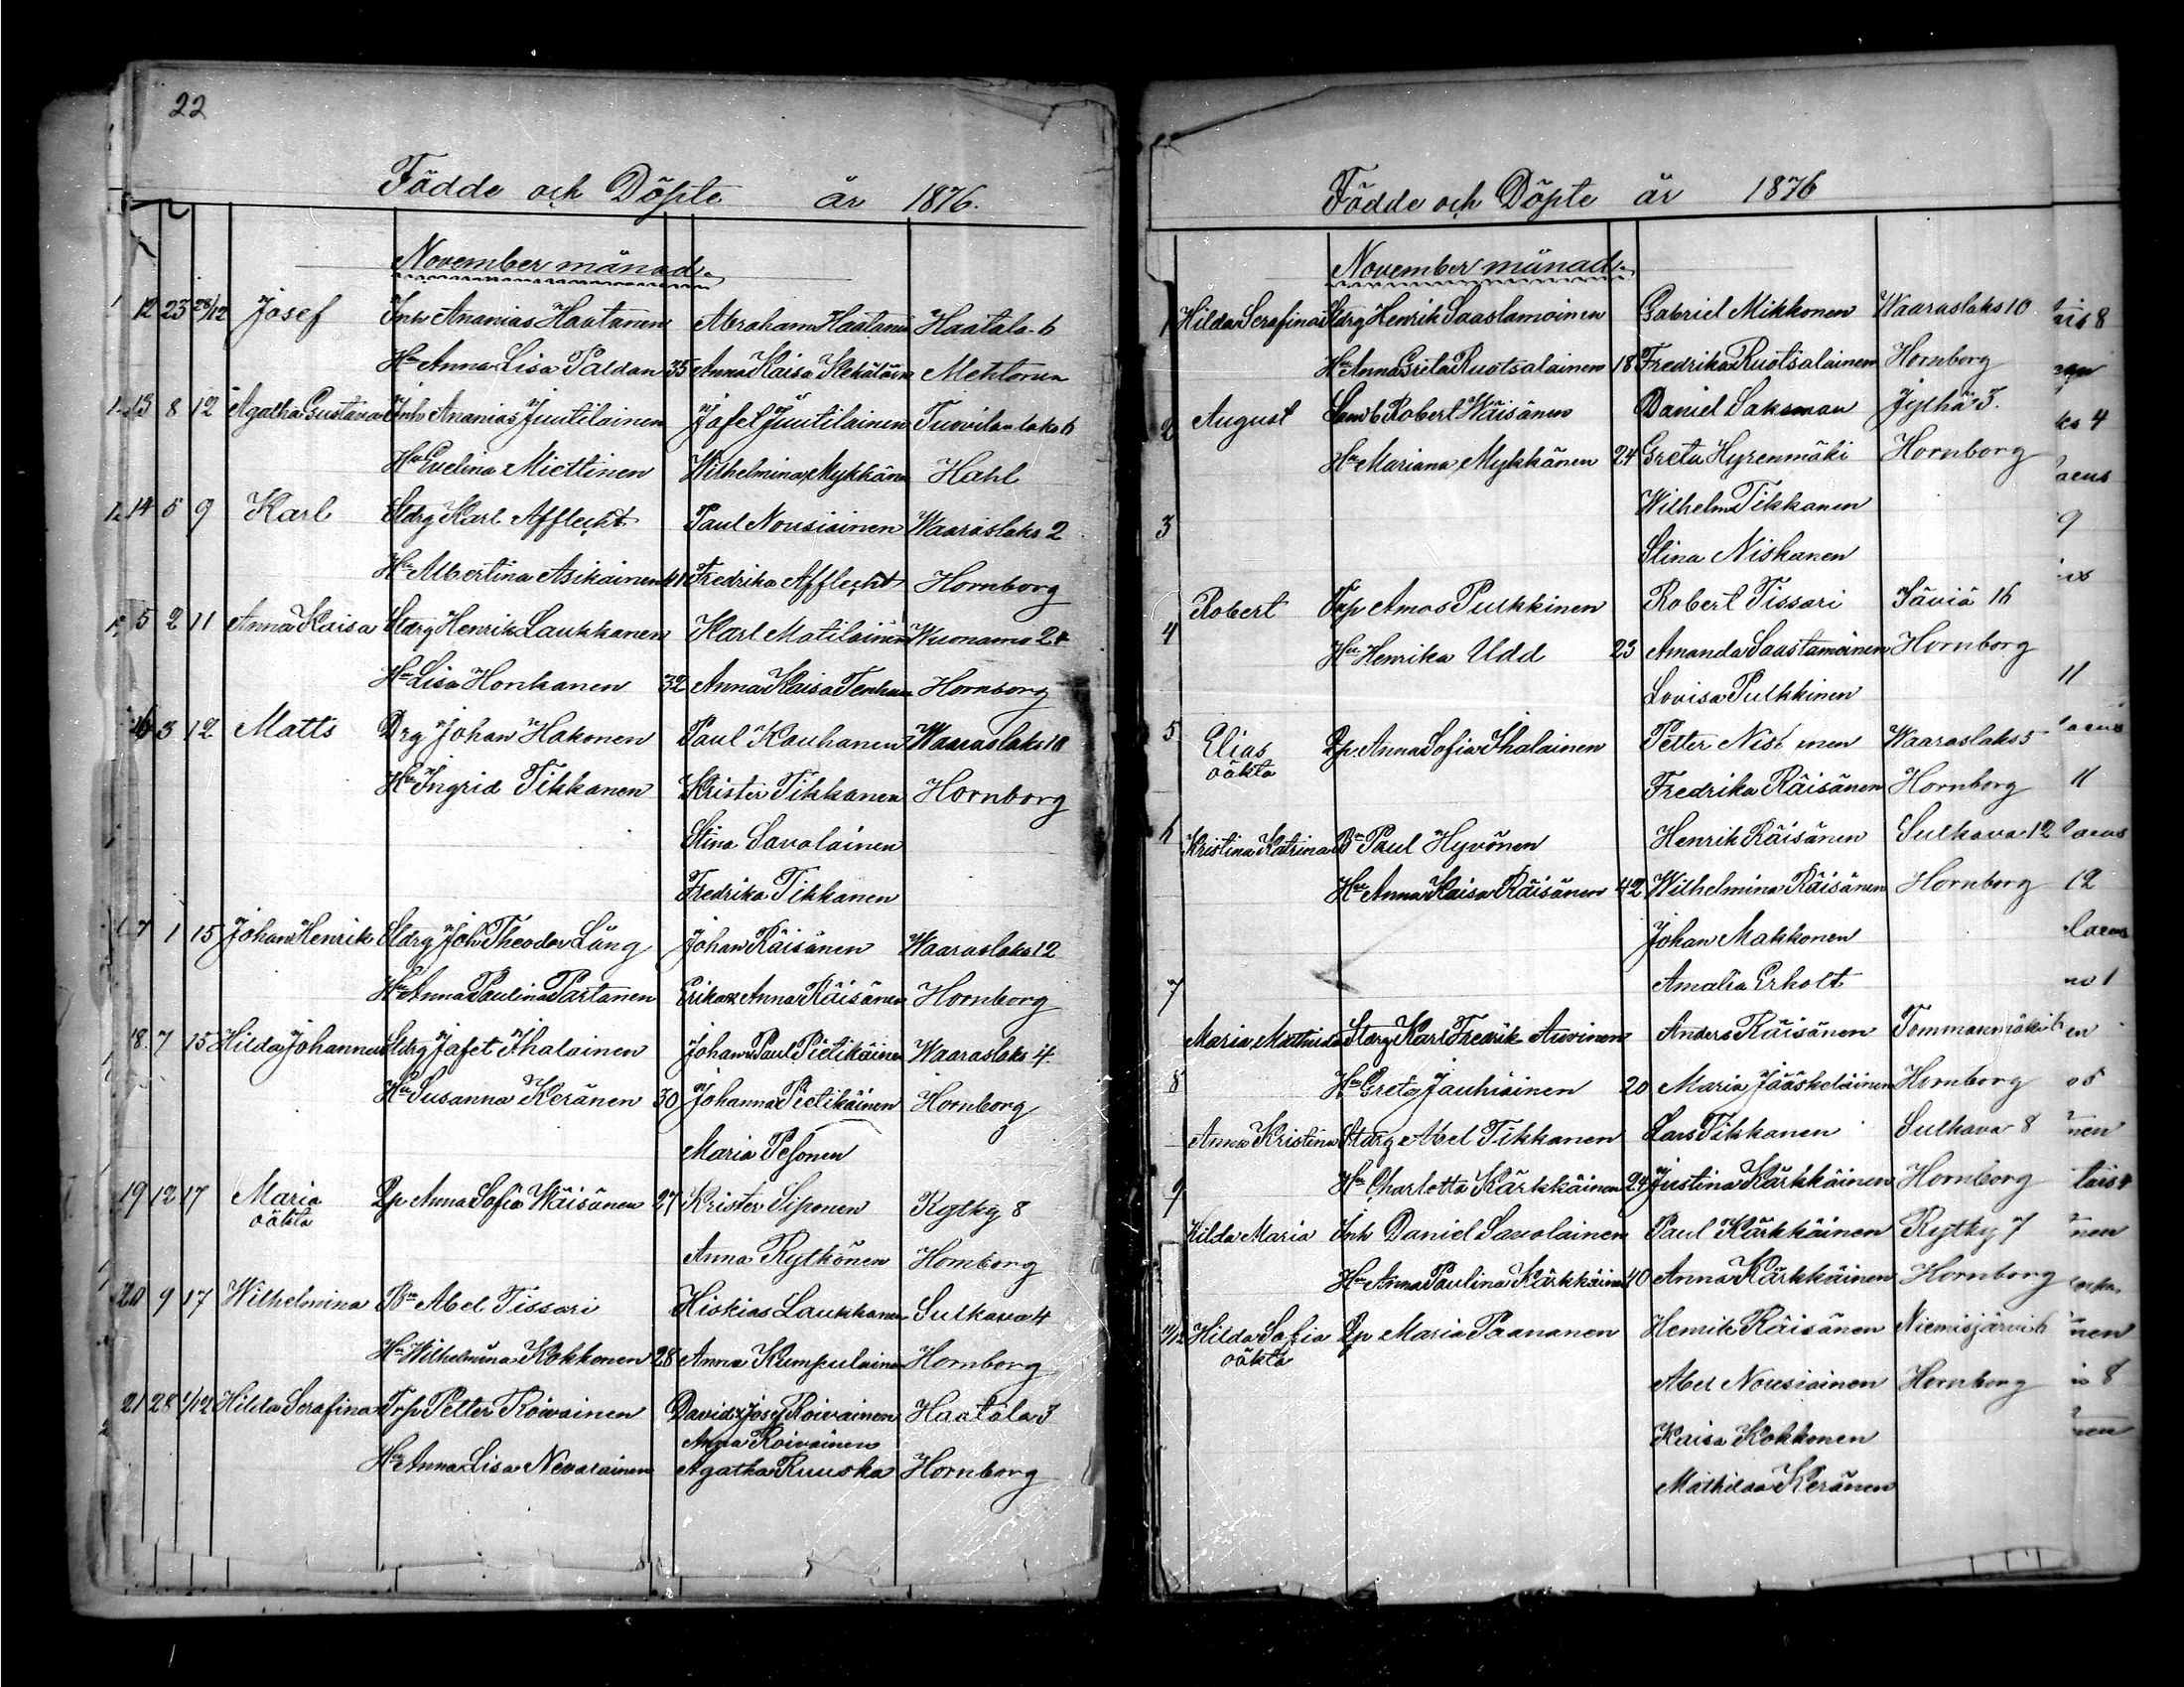 22
Födde och Döpte år 1876.
November månad.
12 23 28/12 Josef Inh Ananias Haatanen Abraham Haatanen Haatala 6
Hu Anna Lisa Paldan 35 Anna Kaisa Kekäläinen
13 8 12 Agatha Gustava Inh Ananias Juutilainen Jafet Juutilainen Tuovilanlaks 6
Hu Evelina Miettinen Wilhelmina Mykkänen
14 5 9 Karl Stdrg Karl Afflecht Paul Nousiainen Waaraslaks 2
Hu Albertina Asikainen 41 Fredrika Afflecht Hornborg
5 2 11 Anna Kaisa Stdrg Henrik Laukkanen Karl Matilainen Wuonamo 24
Hu Lisa Honkanen 32 Anna Kaisa Hornborg
16 3 12 Matts Drg Johan Hakonen Paul Kauhanen Waaraslaks 10
Hu Ingrid Tikkanen Krister Tikkanen Hornborg
Stina Savolainen
Fredrika Tikkanen
17 1 15 Johan Henrik Stdrg Joh Theodor Lång Johan Räisänen Waaraslaks 12
Hu Anna Paulina Partanen Erika & Anna Räisänen Hornborg
18. 7 15 Hilda Johanna Stdrg Jafet Ihalainen Johan & Paul Pietikäinen Waaraslaks 4.
Hu Susanna Keränen 30 Johanna Pietikäinen Hornborg
Maria Pesonen
19 12 17 Maria Qp Anna Sofia Wäisänen 27 Krister Siponen Rytky 8
oäkta
Anna Rytkönen Hornborg
20 9 17 Wilhelmina Bn Abel Tissari Hiskias Laukkanen Sulkava 4
Hu Wilhelmina Kokkonen 28 Anna Kumpulainen Hornborg
21 28 1/12 Hilda Serafina Trp Petter Roivainen David & Josef Roivainen Haatala 3
Anna Roivainen
Hu Anna Lisa Nevarainen Agatha Ruuska Hornborg
Födde och Döpte år 1876
November månad.
1 Hilda Serafina Stdrg Henrik Saastamoinen Gabriel Mikkonen Waaraslaks 10
Hu Anna Greta Ruotsalainen 18 Fredrika Ruotsalainen Hornborg
2 August Robert Wäisänen Daniel Saksman Jylhä 3.
Hu Mariana Mykkänen 24 Greta Hyrenmäki Hornborg
Wilhelm Tikkanen
3
Stina Niskanen
Robert Trp Amos Pulkkinen Robert Tissari Säviä 16
4
Hu Henrika Udd 23 Amanda Saastamoinen Hornborg
Lovisa Pulkkinen
5
Elias Qp. Anna Sofia Ihalainen Petter Waaraslaks 5
oäkta
Fredrika Räisänen Hornborg
6
Kristina Katrina Bn Paul Hyvönen Henrik Räisänen Sulkava 12
Hu Anna Kaisa Räisänen 42 Wilhelmina Räisänen Hornborg
Johan Makkonen
7
Amalia Erholt
Maria Mathilda Stdrg Karl Fredrik Auvinen Anders Räisänen Tommanmäki 6
8
Hu Greta Jauhiainen 20 Maria Jääskeläinen Hornborg
Anna Kristina Stdrg Abel Tikkanen Lars Tikkanen Sulkava 8
9
Hu Charlotta Kärkkäinen 24 Justina Kärkkäinen Hornborg
Hilda Maria Inh Daniel Savolainen Paul Kärkkäinen Rytky 7
Hu Anna Paulina Kärkkäinen 40 Anna Kärkkäinen Hornborg
Hilda Sofia Qp Maria Paananen Henrik Räisänen Niemisjärvi 6
oäkta
Abel Nousiainen Hornborg
Kaisa Kokkonen
Mathilda Keränen